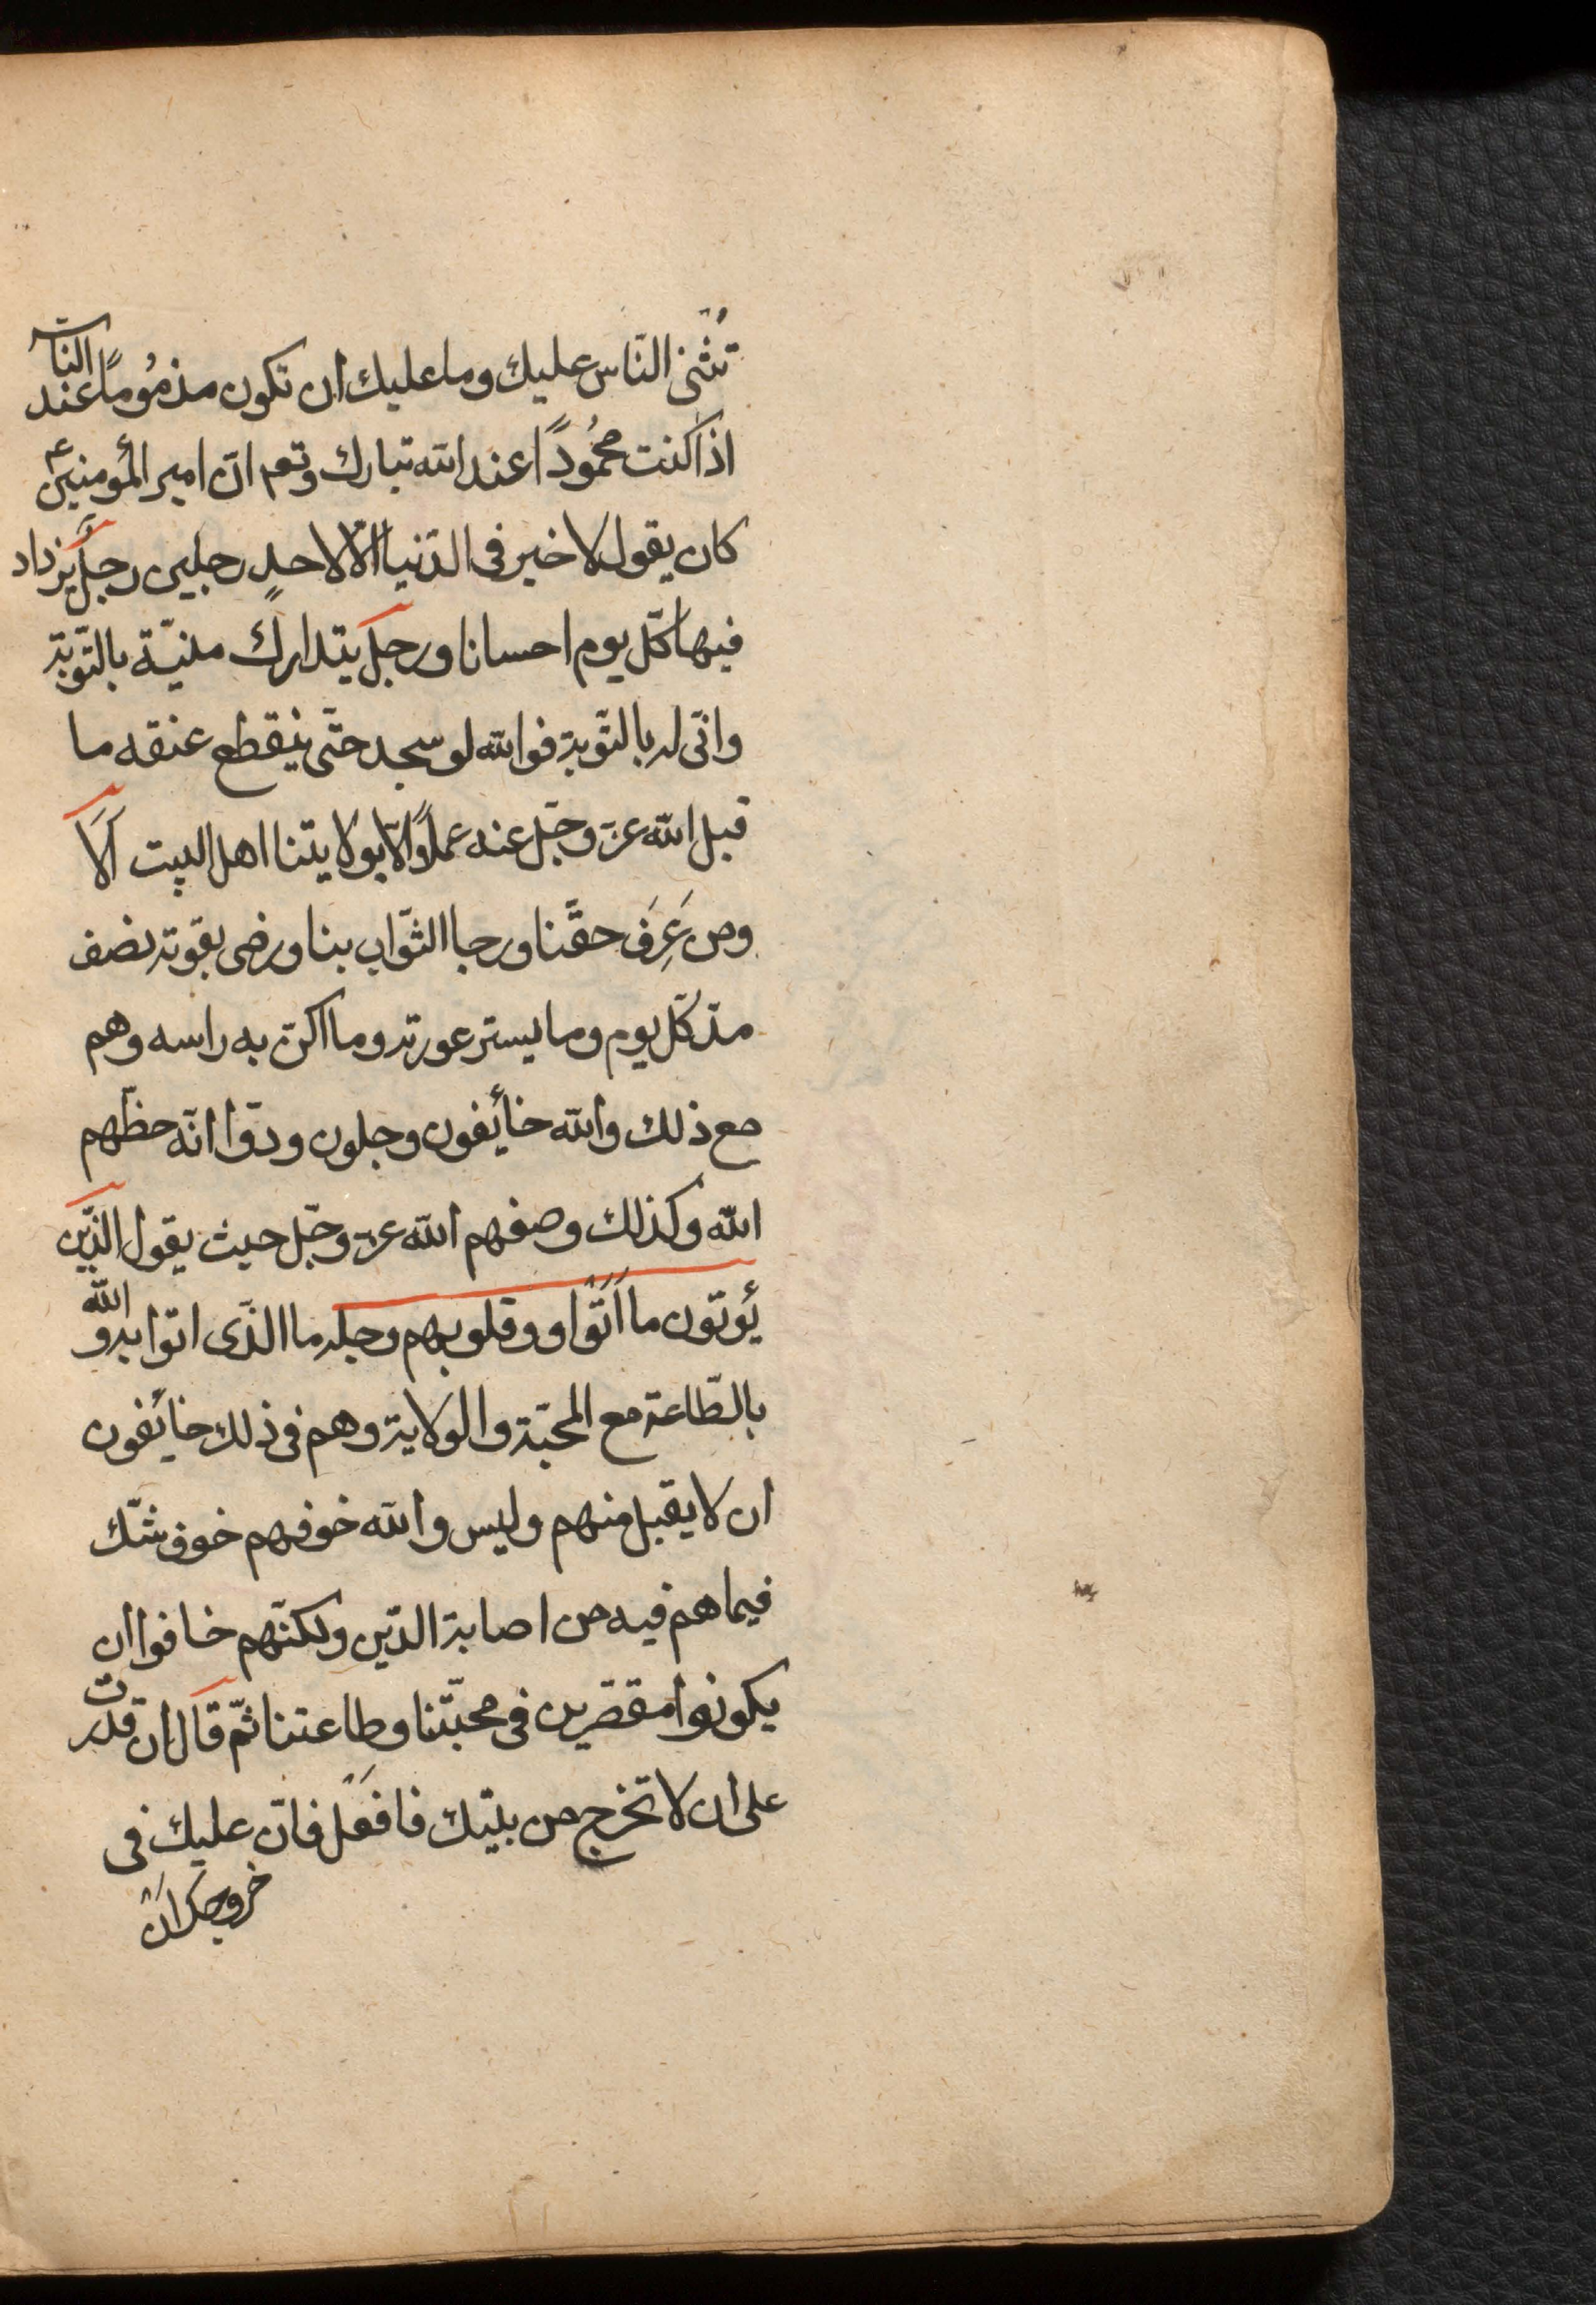 تُثنى النّاس عليك وما عليك ان تكون مذمُومًا عند الناس
اذا كنت محمُودًا عند الله تبارك وتعم انّ امير المؤمنين ع
كان يقول لا خير فى الدّنيا الّا لاحدٍ رجلين رجلٍ يزداد
فيها كلّ يوم احسانا ورجل يتدارك منيّة بالتّوبة
وانّى له بالتّوبة فوالله لو سجد حتّى ينقطع عنقه ما
قبل الله عزّ وجّل عنه عملًا الّا بولايتنا اهل البيت اَلَا
ومن عَرِفَ حقّنا ورجا الثّواب بنا ورضى بقوته نصف
مدّ كلّ يوم وما يستر عورته وما اكنّ به راسه وهم
مع ذلك والله خائفون وجلون ودّوا انّه حظّهم
الله وكذلك وصفهم الله عزّ وجّل حيث يقول الذّين
يُوتون ما اَتَوْا و وقلوبهم وجلة ما الذّى اتوا به والله
بالطّاعة مع المحبّة والولاية وهم فى ذلك خائفون
ان لا يقبل منهم وليس والله خوفهم خوف شّك
فيما هم فيه من اصابة الدّين ولكنّهم خافوا ان
يكونوا مقصّرين فى محبّتنا وطاعتنا ثمّ قال ان قدرت
على ان لا تخرج من بيتك فافعَل فانّ عليك فى
خروجك انْ